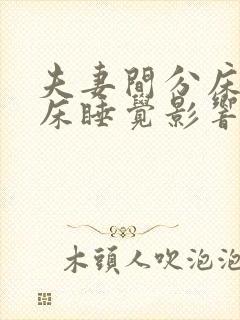 夫妻間分床
床睡覺影響
木頭人吹泡泡